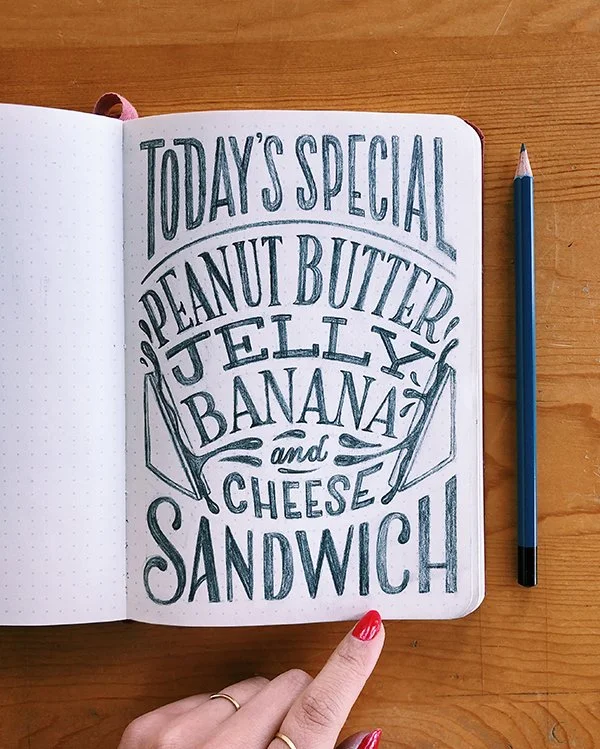 TODAY'S SPECIAL
PEANUT BUTTER
JELLY
BANANA
and
CHEESE
SANDWICH